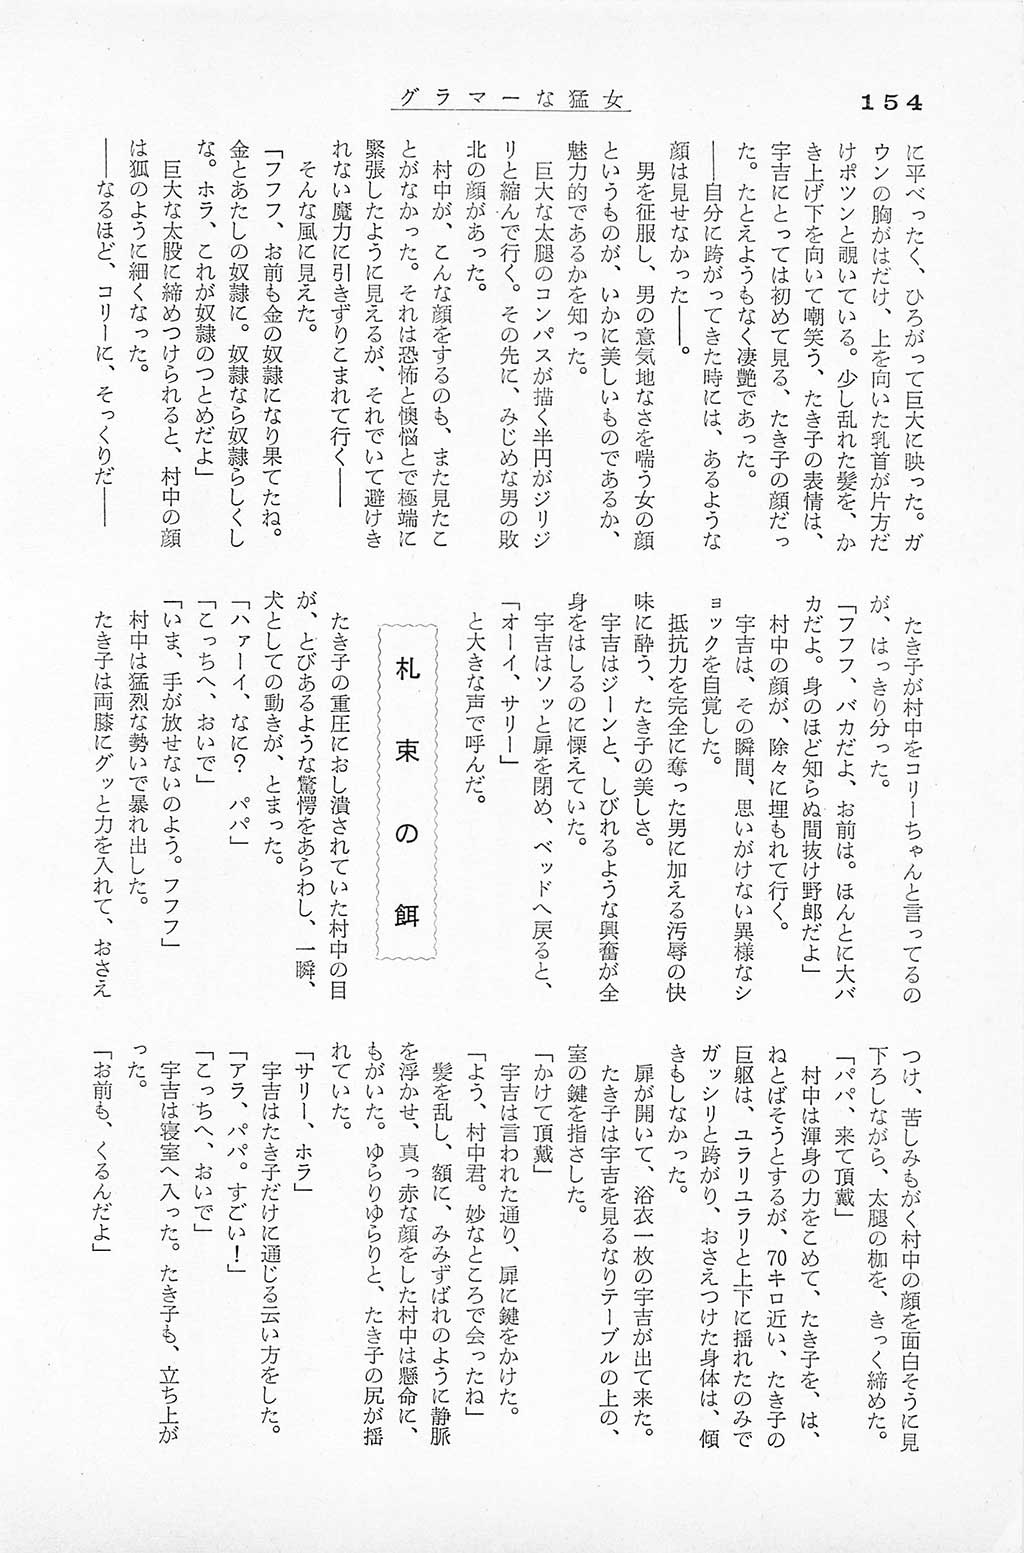 154
グラマーな猛女
に平べったく、ひろがって巨大に映った。ガ
ウンの胸がはだけ、上を向いた乳首が片方だ
けポツンと覗いている。少し乱れた髪を、か
き上げ下を向いて嘲笑う、たき子の表情は、
宇吉にとっては初めて見る、たき子の顔だっ
た。たとえようもなく凄艶であった。
――自分に跨がってきた時には、あるような
顔は見せなかった――。
男を征服し、男の意気地なさを喘う女の顔
というものが、いかに美しいものであるか、
魅力的であるかを知った。
巨大な太腿のコンパスが描く半円がジリジ
リと縮んで行く。その先に、みじめな男の敗
北の顔があった。
村中が、こんな顔をするのも、また見たこ
とがなかった。それは恐怖と懊悩とで極端に
緊張したように見えるが、それでいて避けき
れない魔力に引きずりこまれて行く――
そんな風に見えた。
「フフフ、お前も金の奴隷になり果てたね。
金とあたしの奴隷に。奴隷なら奴隷らしくし
な。ホラ、これが奴隷のつとめだよ」
巨大な太股に締めつけられると、村中の顔
は狐のように細くなった。
――なるほど、コリーに、そっくりだ――
たき子が村中をコリーちゃんと言ってるの
が、はっきり分った。
「フフフ、バカだよ、お前は。ほんとに大バ
カだよ。身のほど知らぬ間抜け野郎だよ」
村中の顔が、除々に埋もれて行く。
宇吉は、その瞬間、思いがけない異様なシ
ョックを自覚した。
抵抗力を完全に奪った男に加える汚辱の快
味に酔う、たき子の美しさ。
宇吉はジーンと、しびれるような興奮が全
身をはしるのに慄えていた。
宇吉はソッと扉を閉め、ベッドへ戻ると、
「オーイ、サリー」
と大きな声で呼んだ。
札束の餌
たき子の重圧におし潰されていた村中の目
が、とびあるような驚愕をあらわし、一瞬、
犬としての動きが、とまった。
「ハァーイ、なに？　パパ」
「こっちへ、おいで」
「いま、手が放せないのよう。フフフ」
村中は猛烈な勢いで暴れ出した。
たき子は両膝にグッと力を入れて、おさえ
つけ、苦しみもがく村中の顔を面白そうに見
下ろしながら、太腿の枷を、きっく締めた。
「パパ、来て頂戴」
村中は渾身の力をこめて、たき子を、は、
ねとばそうとするが、70キロ近い、たき子の
巨躯は、ユラリユラリと上下に揺れたのみで
ガッシリと跨がり、おさえつけた身体は、傾
きもしなかった。
扉が開いて、浴衣一枚の宇吉が出て来た。
たき子は宇吉を見るなりテーブルの上の、
室の鍵を指さした。
「かけて頂戴」
宇吉は言われた通り、扉に鍵をかけた。
「よう、村中君。妙なところで会ったね」
髪を乱し、額に、みみずばれのように静脈
を浮かせ、真っ赤な顔をした村中は懸命に、
もがいた。ゆらりゆらりと、たき子の尻が揺
れていた。
「サリー、ホラ」
宇吉はたき子だけに通じる云い方をした。
「アラ、パパ。すごい！」
「こっちへ、おいで」
宇吉は寝室へ入った。たき子も、立ち上が
った。
「お前も、くるんだよ」